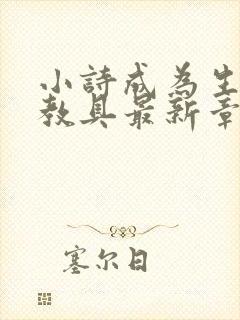 小詩成為生
教具最新章
塞尔日